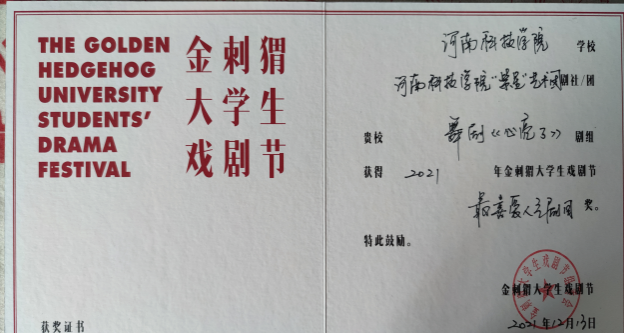 THE GOLDEN
HEDGEHOG
UNIVERSITY
STUDENTS'
DRAMA
FESTIVAL
金刺猬
大学生
戏剧节
获奖证书
河南科技学院 学校
河南科技学院"繁星"艺术团剧社/团
贵校 舞剧《心亮了》 剧组
获得 2021 年金刺猬大学生戏剧节
最喜爱人气剧目 奖。
特此鼓励。
金刺猬大学生戏剧节
2021年12月13日